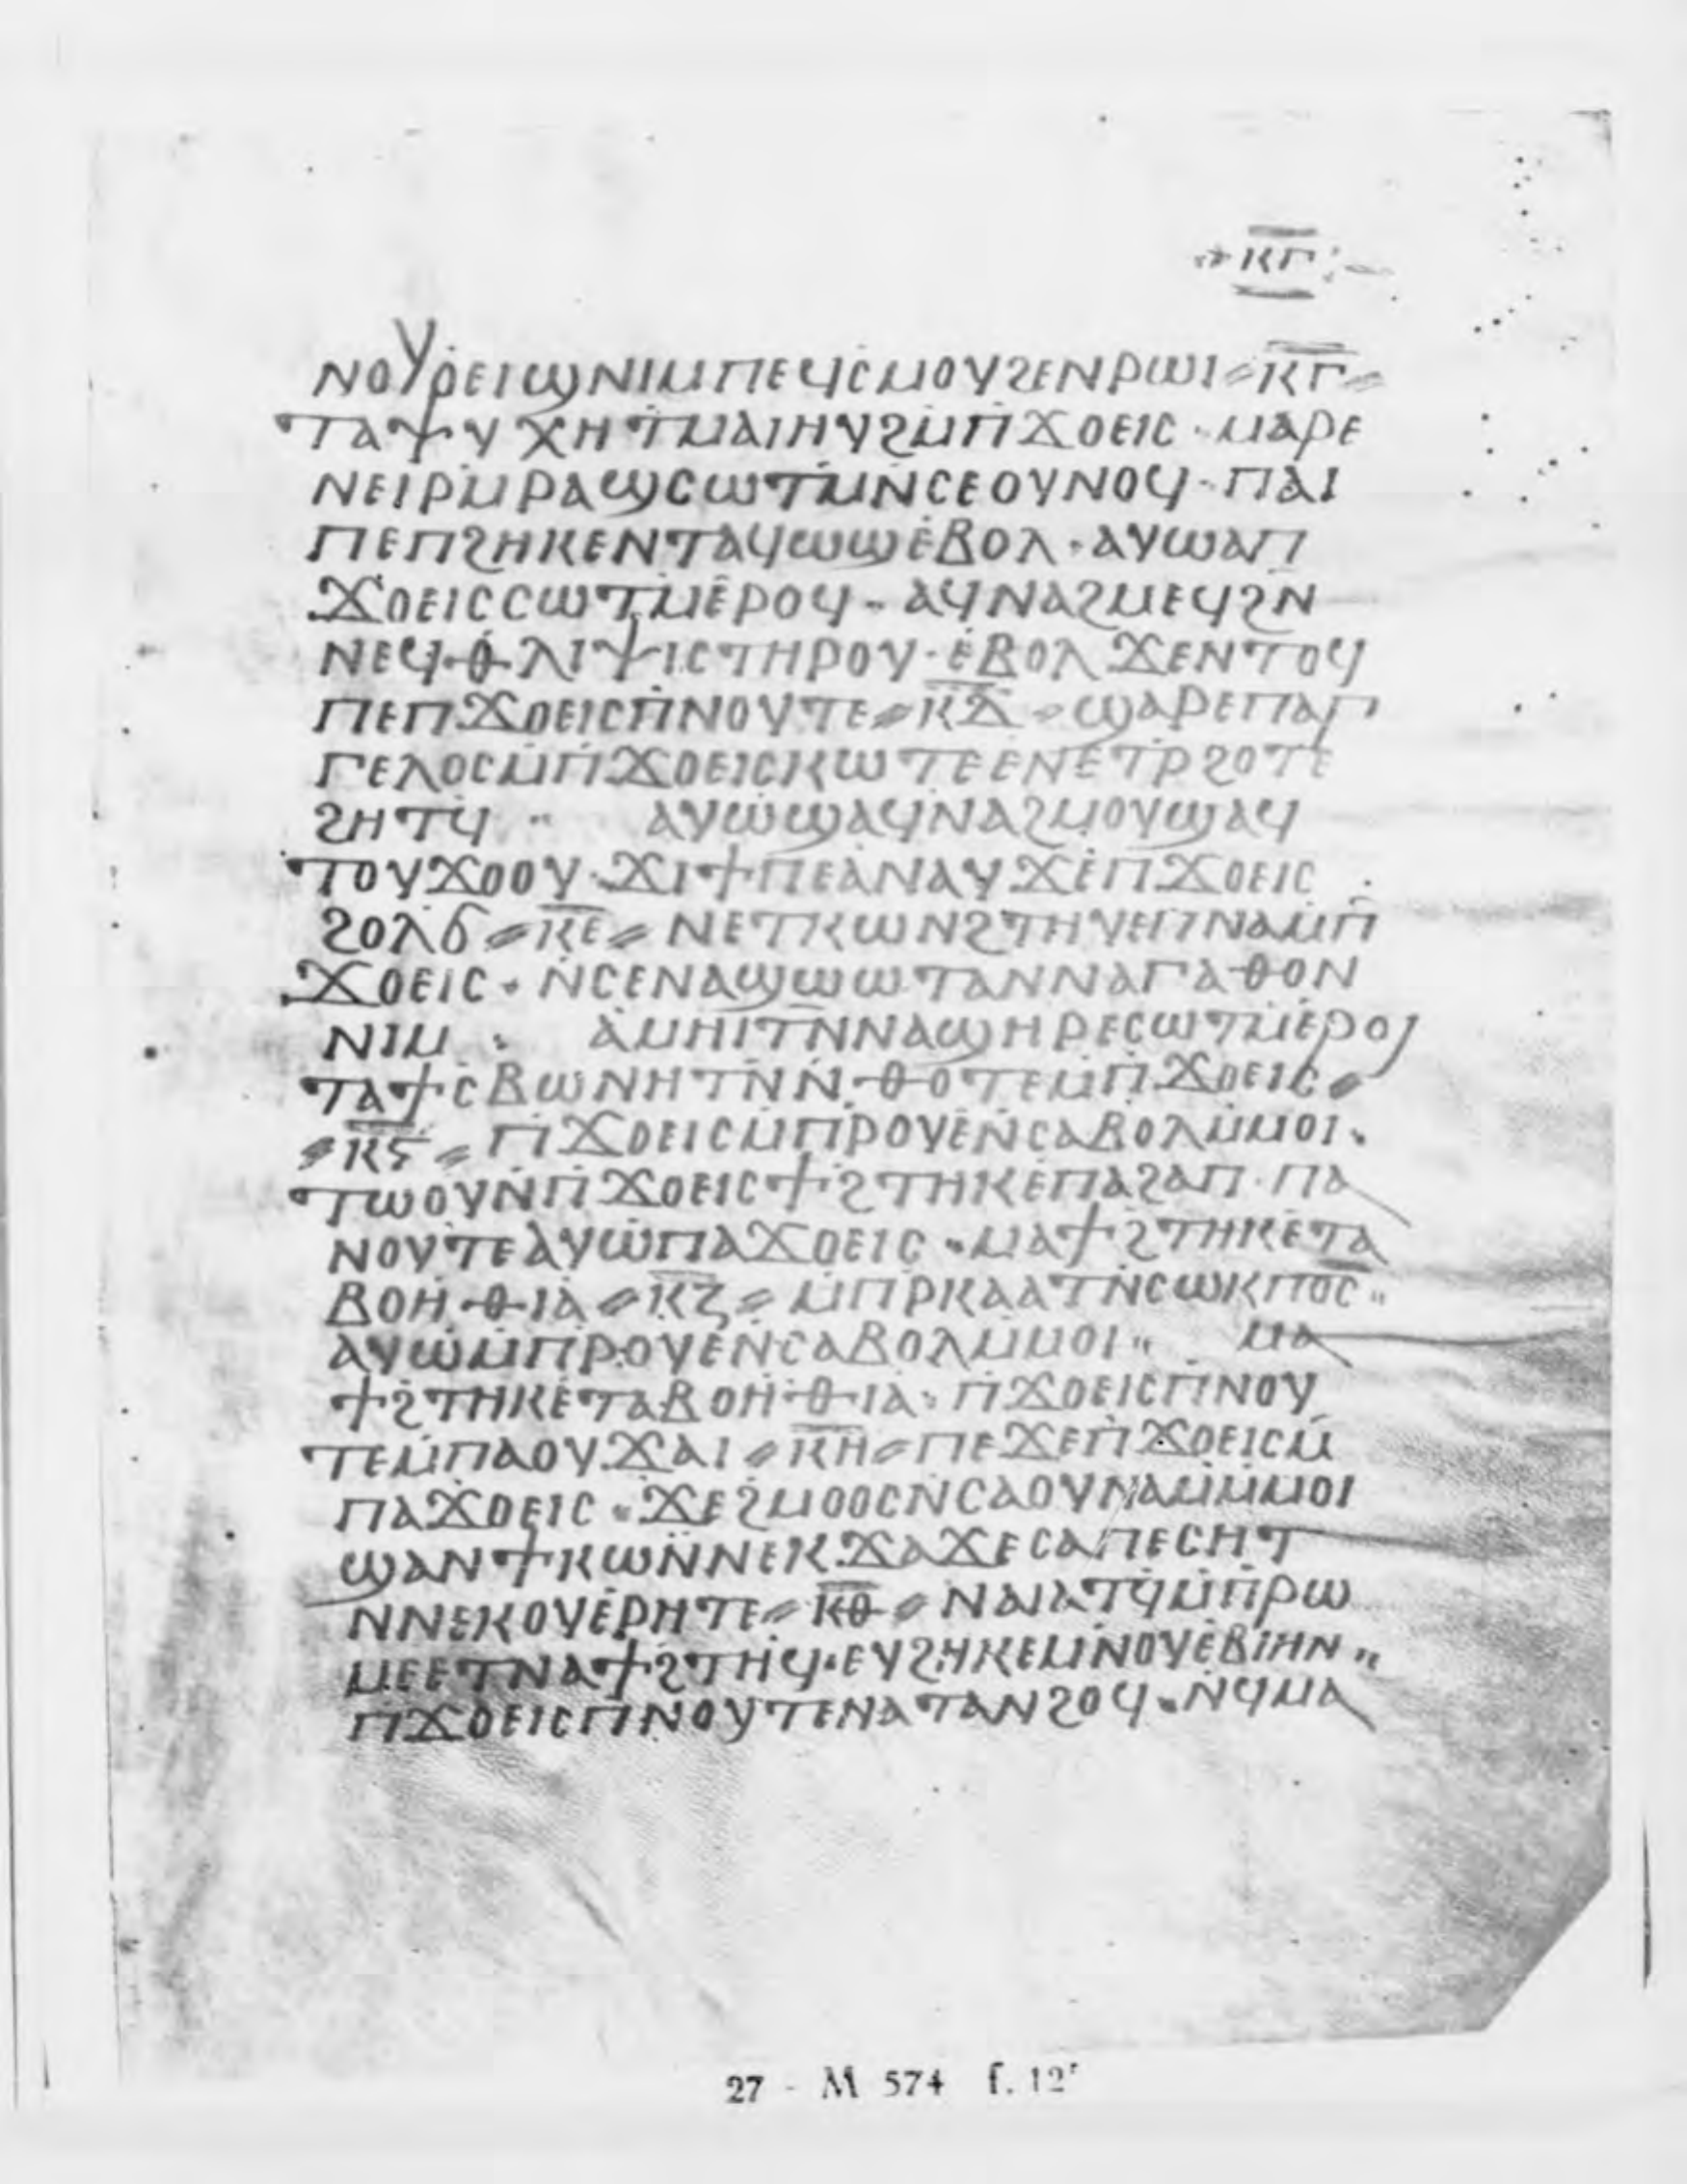 ⲕ̅ⲅ̅
ⲛⲟⲩⲟⲉⲓϣⲛⲓⲙⲡⲉϥⲥⲙⲟⲩϩⲉⲛⲣⲱⲓ⸗ⲕ̅ⲅ̅⸗
ⲧⲁⲯⲩⲭⲏⲧ̇ⲙⲁⲓⲏⲩϩⲙ̇ⲡ̇ϫⲟⲉⲓⲥ·ⲙⲁⲣⲉ
ⲛⲉⲓⲣⲙ̇ⲣⲁϣⲥⲱⲧⲙ̇ⲛ̇ⲥⲉⲟⲩⲛⲟϥ·ⲡⲁⲓ
ⲡⲉⲡϩⲏⲕⲉⲛⲧⲁϥⲱϣⲉ̇ⲃⲟⲗ·ⲁⲩⲱⲁⲡ
ϫⲟⲉⲓⲥⲥⲱⲧⲙⲉ̇ⲣⲟϥ·ⲁϥⲛⲁϩⲙⲉϥϩⲛ̇
ⲛⲉϥⲑⲗⲓⲯⲓⲥⲧⲏⲣⲟⲩ·ⲉ̇ⲃⲟⲗϫⲉⲛⲧⲟϥ
ⲡⲉⲡϫⲟⲉⲓⲥⲡ̇ⲛⲟⲩⲧⲉ⸗ⲕ̅ⲇ̅⸗ϣⲁⲣⲉⲡⲁⲅ
ⲅⲉⲗⲟⲥⲙ̇ⲡ̇ϫⲟⲉⲓⲥⲕⲱⲧⲉⲉⲛⲉⲧⲣ̇ϩⲟⲧⲉ
ϩⲏⲧϥ̇·· ⲁⲩⲱ̇ϣⲁϥⲛⲁϩⲙⲟⲩϣⲁϥ
ⲧⲟⲩϫⲟⲟⲩ·ϫⲓϯⲡⲉⲁ̇ⲛⲁⲩϫⲉⲡ̇ϫⲟⲉⲓⲥ
ϩⲟⲗϭ⸗ⲕ̅ⲉ̅⸗ⲛⲉⲧⲕⲱⲛϩⲧⲏⲩⲉⲡⲛⲁⲙ̇ⲡ̇
ϫⲟⲉⲓⲥ·ⲛ̇ⲥⲉⲛⲁϣⲱⲱⲧⲁⲛⲛⲁⲅⲁⲑⲟⲛ
ⲛⲓⲙ: ⲁ̇ⲙⲏⲓⲧⲛ̅ⲛⲁϣⲏⲣⲉⲥⲱⲧⲙⲉ̇ⲣⲟⲓ
ⲧⲁϯⲥⲃⲱⲛⲏⲧⲛ̇ⲛ̇ⲑⲟⲧⲉⲙ̇ⲡ̇ϫⲟⲉⲓⲥ⸗
⸗ⲕ̅ⲋ̅⸗ⲡ̇ϫⲟⲉⲓⲥⲙ̇ⲡⲣⲟⲩⲉ̇ⲛ̇ⲥⲁⲃⲟⲗⲙ̇ⲙⲟⲓ·
ⲧⲱⲟⲩⲛ̇ⲡ̇ϫⲟⲉⲓⲥϯϩⲧⲏⲕⲉ̇ⲡⲁϩⲁⲡ·ⲡⲁ
ⲛⲟⲩⲧⲉⲁⲩⲱ̇ⲡⲁϫⲟⲉⲓⲥ·ⲙⲁϯϩⲧⲏⲕⲉ̇ⲧⲁ
ⲃⲟⲏ̇ⲑⲓⲁ̇⸗ⲕ̅ⲍ̅⸗ⲙ̇ⲡⲣ̇ⲕⲁⲁⲧⲛ̇ⲥⲱⲕⲡⲟ̅ⲥ̅··
ⲁⲩⲱ̇ⲙ̇ⲡⲣⲟⲩⲉ̇ⲛ̇ⲥⲁⲃⲟⲗⲙ̇ⲙⲟⲓ·· ⲙⲁ
ϯϩⲧⲏⲕⲉ̇ⲧⲁⲃⲟⲏ̇ⲑⲓⲁ:ⲡ̇ϫⲟⲉⲓⲥⲡ̇ⲛⲟⲩ
ⲧⲉⲙ̇ⲡⲁⲟⲩϫⲁⲓ⸗ⲕ̅ⲏ̅⸗ⲡⲉϫⲉⲡ̇ϫⲟⲉⲓⲥⲙ̇
ⲡⲁϫⲟⲉⲓⲥ·ϫⲉϩⲙⲟⲟⲥⲛ̇ⲥⲁⲟⲩⲛⲁⲙ̇ⲙ̇ⲙⲟⲓ
ϣⲁⲛϯⲕⲱⲛ̇ⲛⲉⲕϫⲁϫⲉⲥⲁⲡⲉⲥⲏⲧ
ⲛⲛⲉⲕⲟⲩⲉ̇ⲣⲏⲧⲉ⸗ⲕ̅ⲑ̅⸗ⲛⲁⲓⲁⲧϥ̇ⲙ̇ⲡ̇ⲣⲱ
ⲙⲉⲉⲧⲛⲁϯϩⲧⲏϥ·ⲉⲩϩⲏⲕⲉⲙⲛ̇ⲟⲩⲉ̇ⲃⲓⲏⲛ··
ⲡϫⲟⲉⲓⲥⲡ̇ⲛⲟⲩⲧⲉⲛⲁⲧⲁⲛϩⲟϥ·ⲛϥ̇ⲙⲁ
27 - M 574 f. 12r